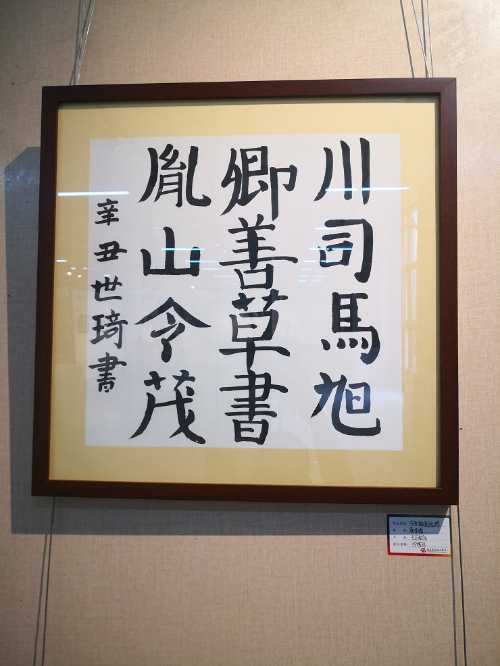 川司馬旭
卿善草書
胤山令茂
辛丑世琦書